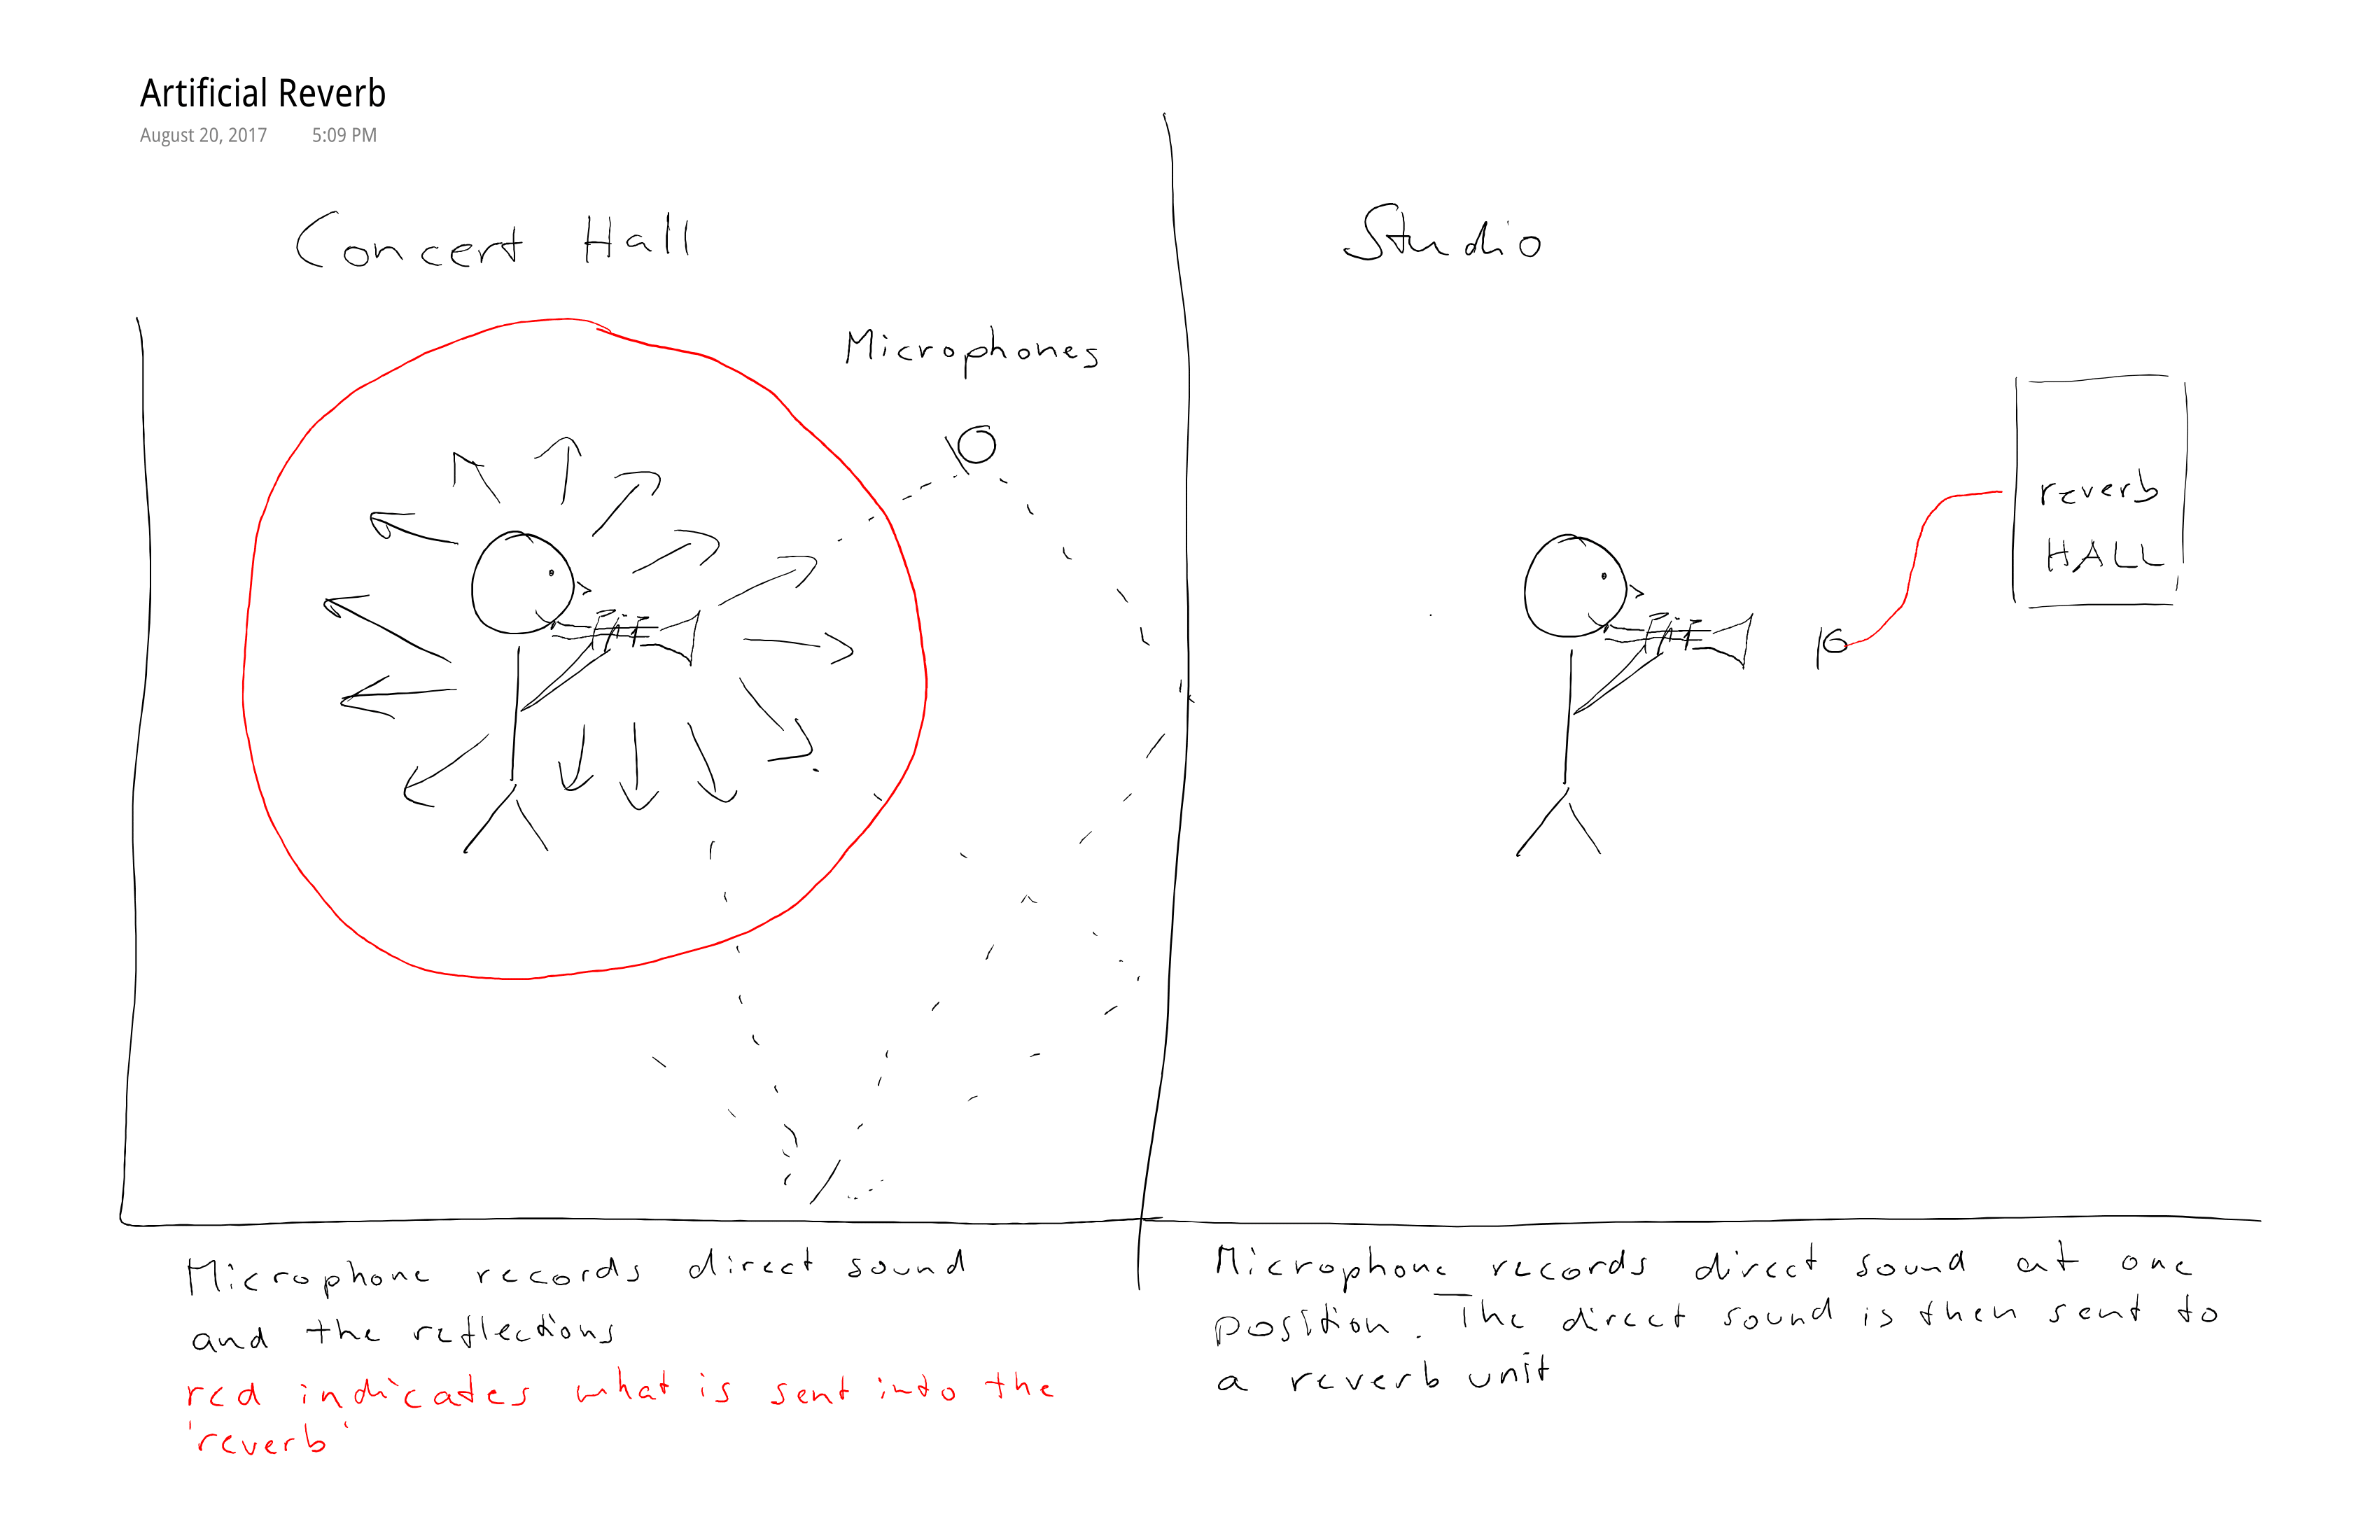 Artificial Reverb
August 20, 2017 5:09 PM
Concert Hall
Microphones
Microphone records direct sound
and the reflections
red indicates what is sent into the
'reverb'
Studio
reverb
HALL
Microphone records direct sound at one
position. The direct sound is then sent to
a reverb unit